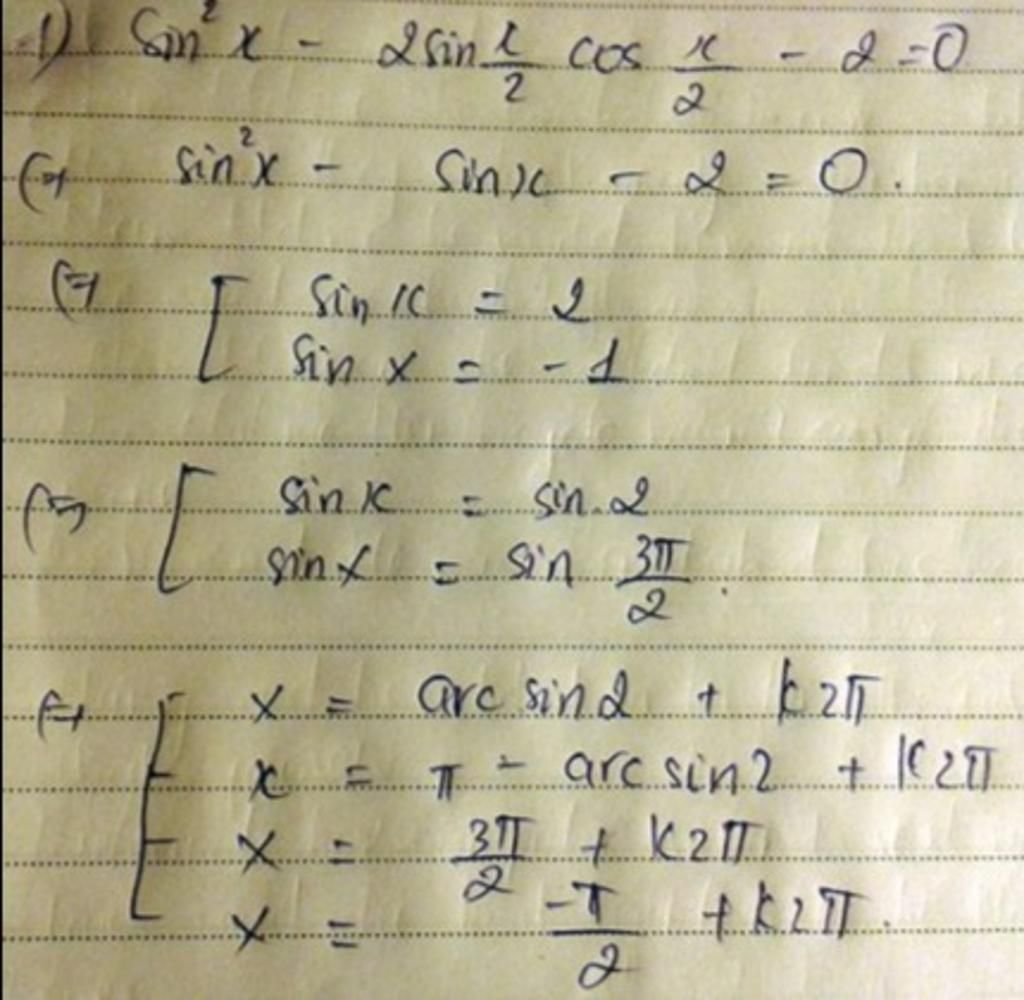 1) sin²x - 2sin x/2 cos x/2 - 2 = 0
⇔ sin²x - sinx - 2 = 0.
⇔ [ sinx = 2
sin x = -1
⇔ [ sinx = sin 2
sinx = sin 3π/2.
⇔ [ x = arc sin2 + k2π
x = π - arc sin2 + k2π
x = 3π/2 + k2π
x = -π/2 + k2π.